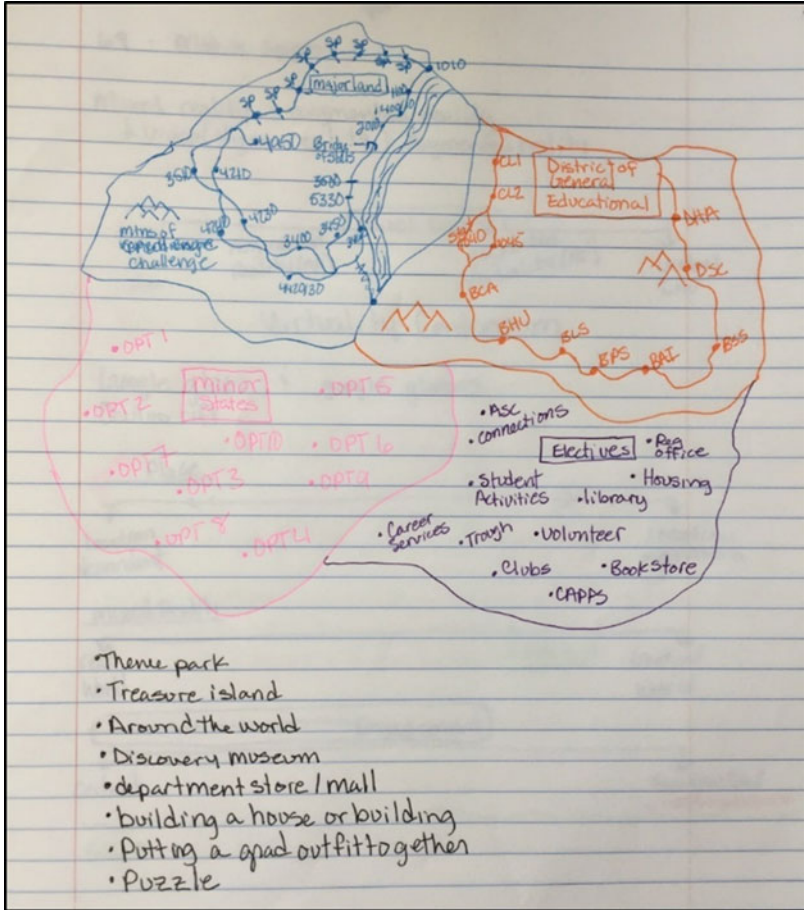 SP
SP
SP
SP
SP
SP
SP
SP
SP
1010
majorland
4950
3510
4210
4230
3400
3450
5330
442930
mtns of
challenge
CL1
CL2
District of
General
Educational
DHA
DSC
BCA
BHU
BLS
BPS
BAI
BSS
OPT 1
minor
States
OPT 5
OPT 2
OPT 10
OPT 6
OPT 7
OPT 3
OPT 9
OPT 8
OPT 4
ASC
connections
Electives
Reg
office
Student
Activities
Housing
library
Career
Services
Trough
Volunteer
Clubs
Bookstore
CAPPS
Theme park
• Treasure island
• Around the world
• Discovery museum
• department store / mall
• building a house or building
• Putting a grad outfit together
• Puzzle